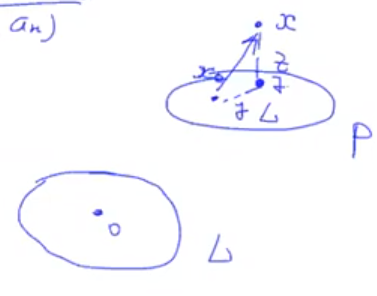 aₙ)
x
z
x₀
y
y L
P
0
L